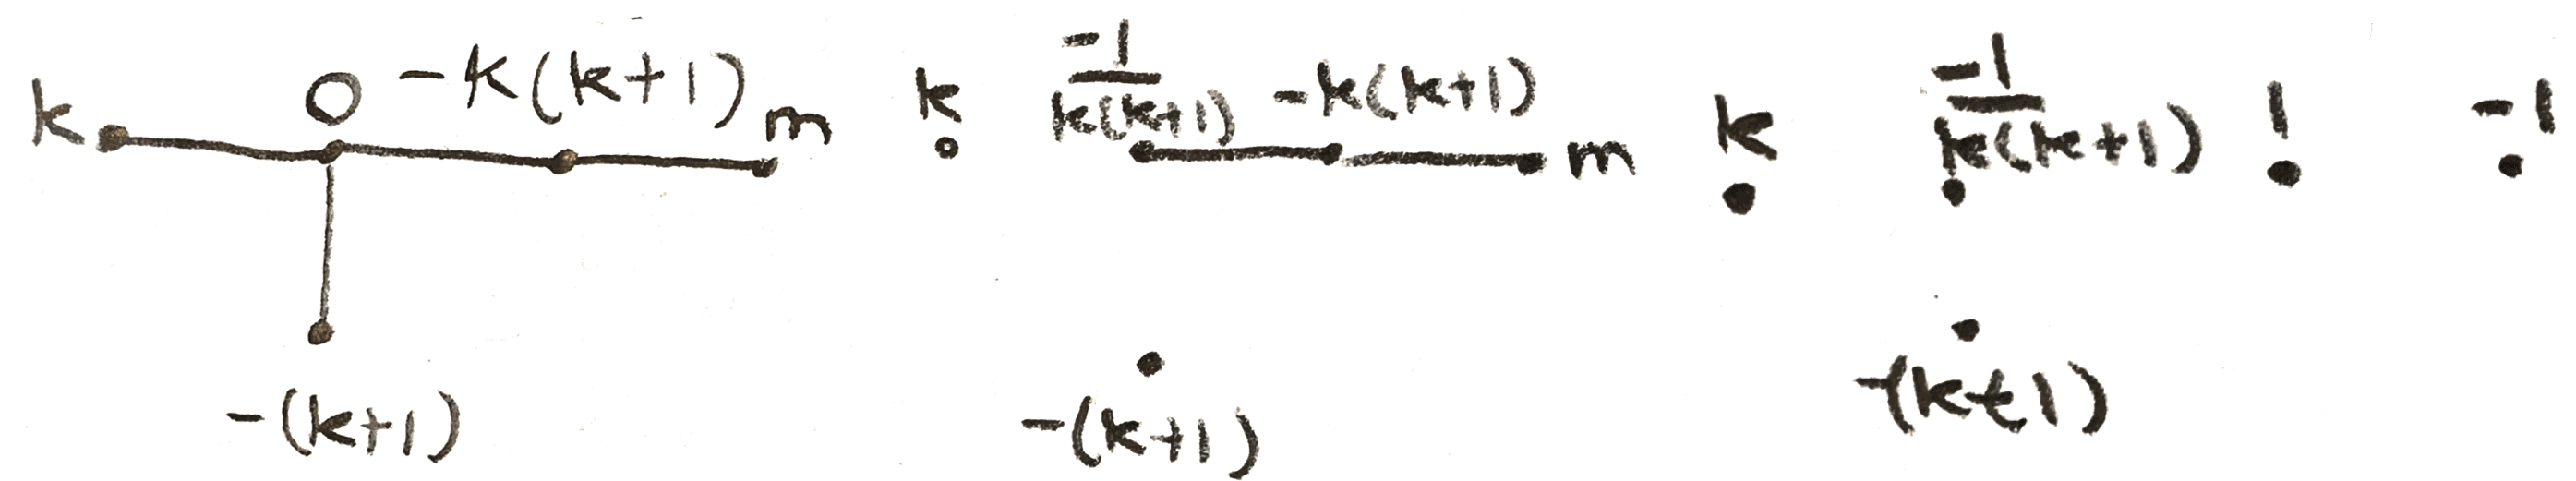 k 0 -k(k+1) m
-(k+1)
k -1/k(k+1) -k(k+1) m
-(k+1)
k -1/k(k+1) 1 -1
-(k+1)